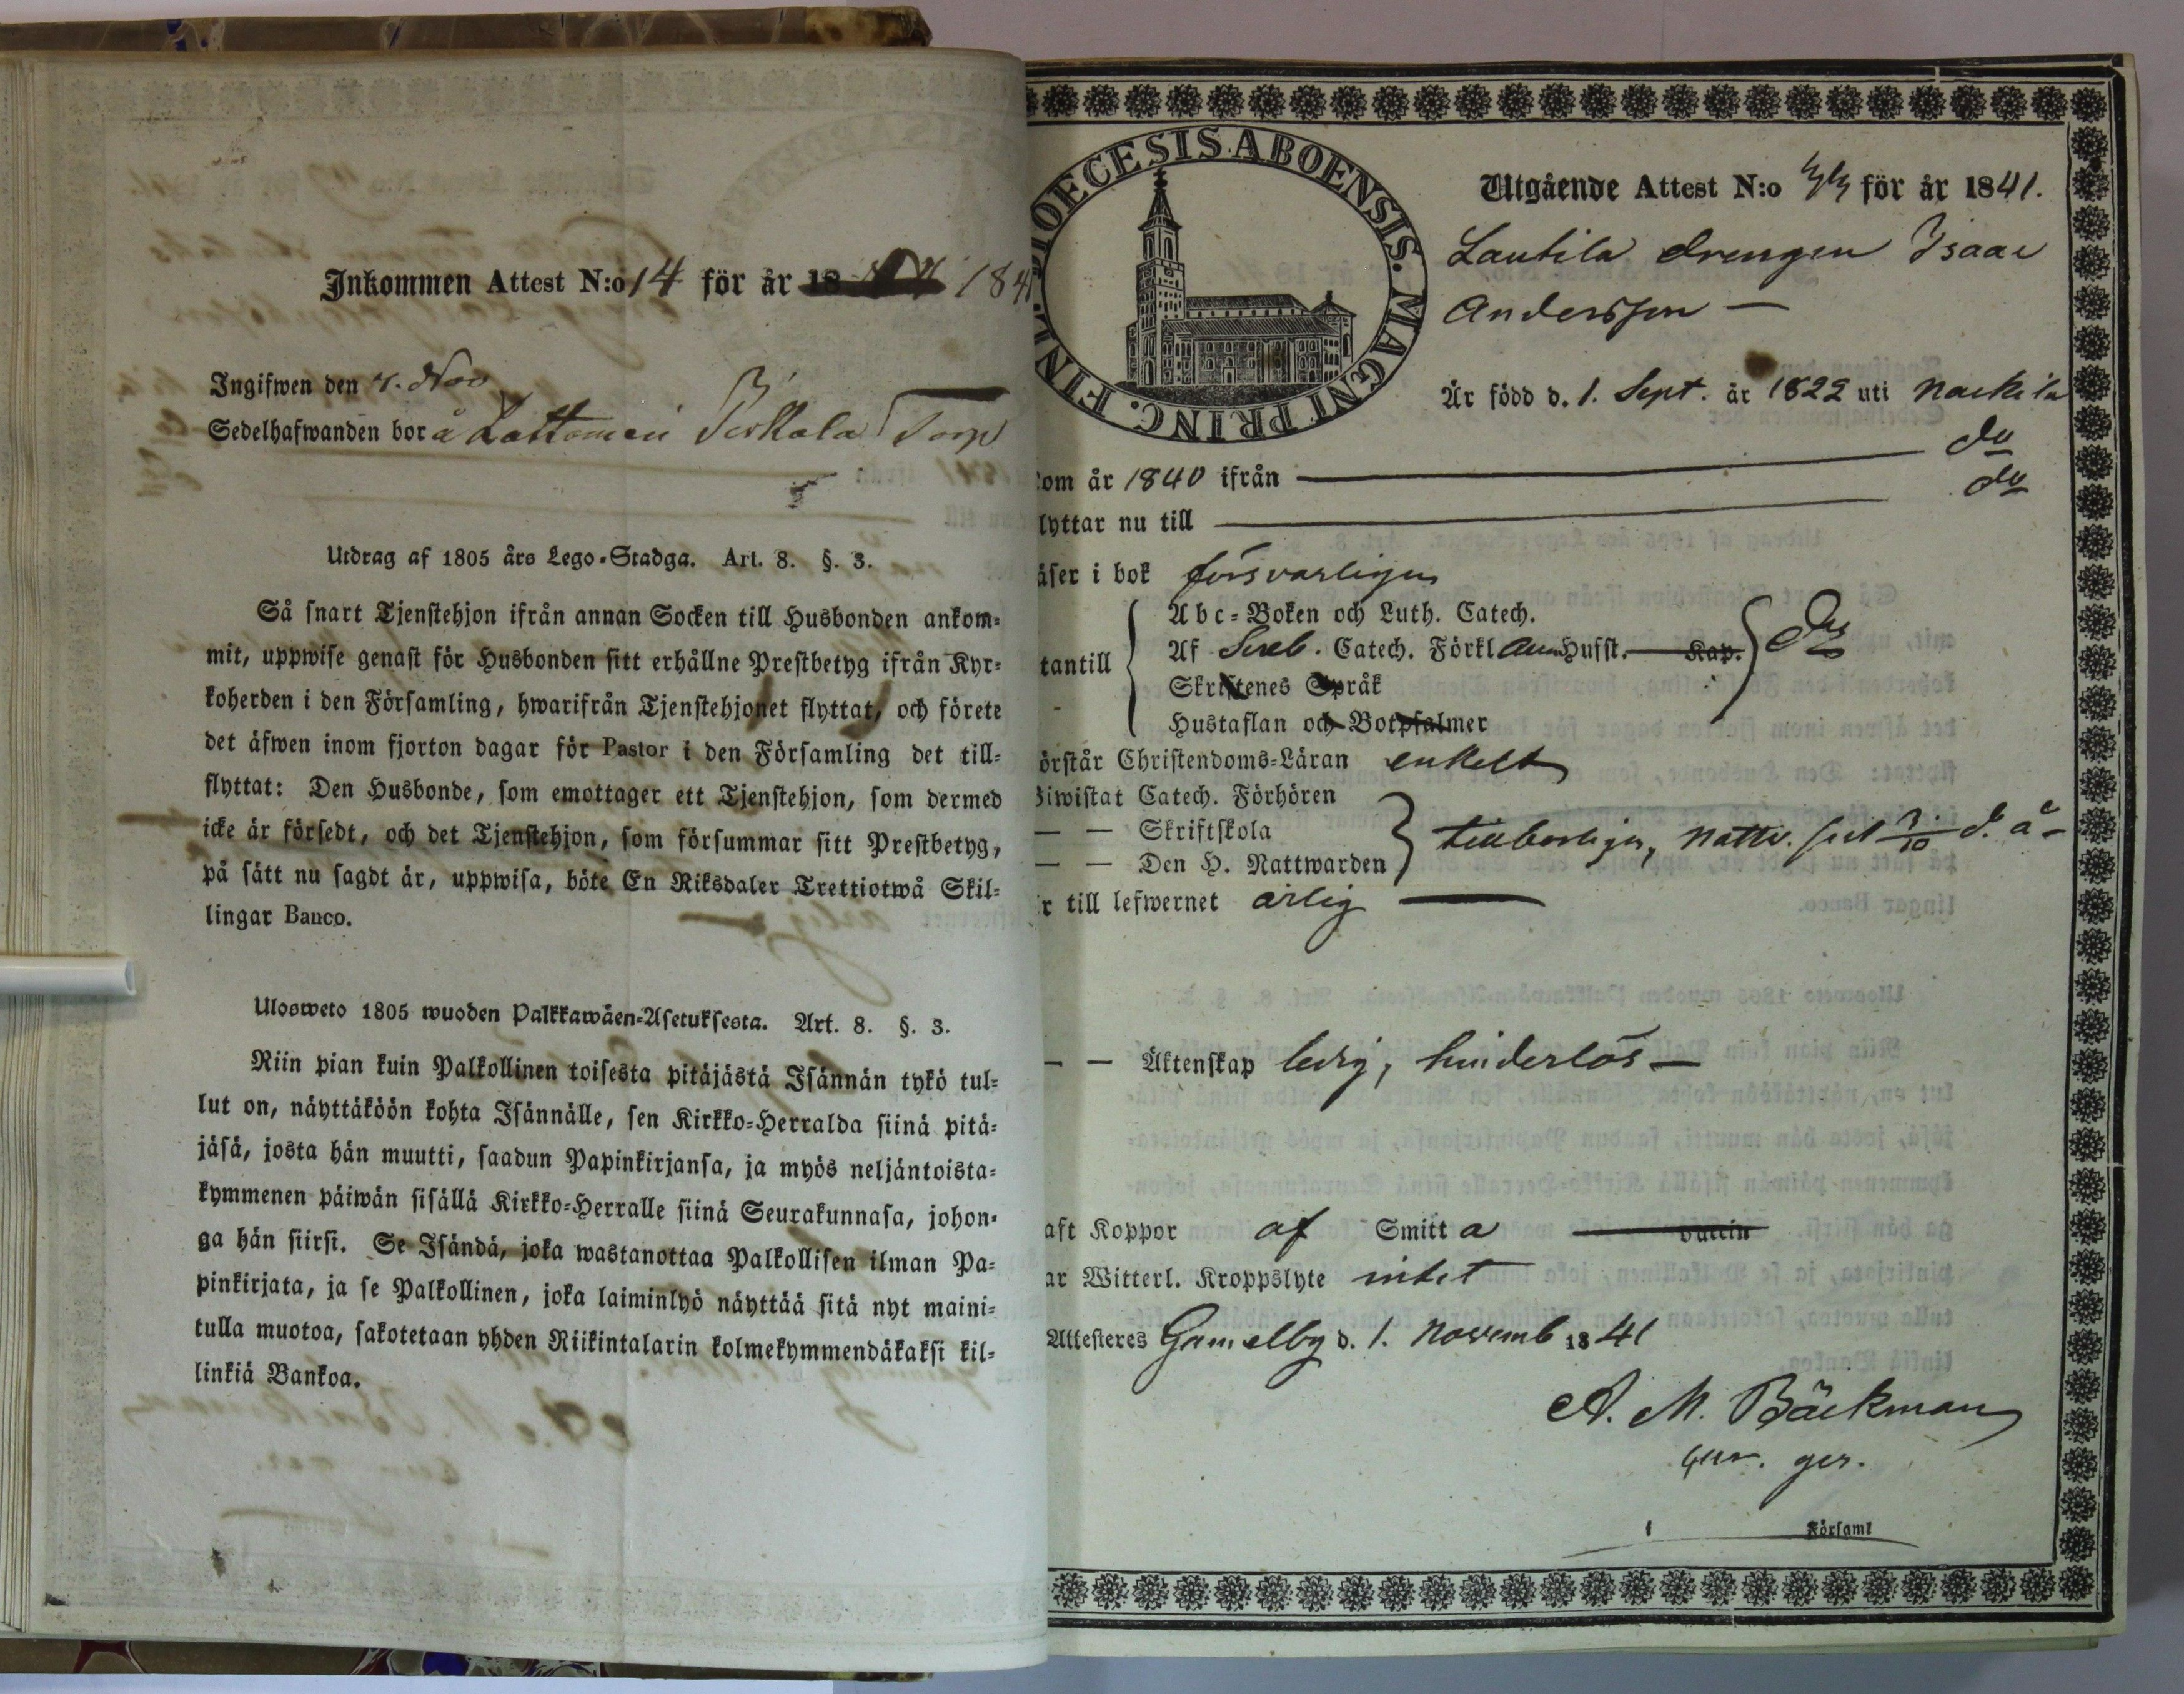 Inkommen Attest N:o 14 för år 18 184
Ingifwen den 4. Nov
Sedelhafwanden bor å Lattomeri Torp
Utdrag af 1805 års Lego-Stadga. Art. 8. §. 3.
Så snart Tjenstehjon ifrån annan Socken till Husbonden ankom-
mit, uppwise genast för Husbonden sitt erhållne Prestbetyg ifrån Kyr-
koherden i den Församling, hwarifrån Tjenstehjonet flyttat, och förete
det äfwen inom fjorton dagar för Pastor i den Församling det till-
flyttat: Den Husbonde, som emottager ett Tjenstehjon, som dermed
icke är försedt, och det Tjenstehjon, som försummar sitt Prestbetyg,
på sätt nu sagdt är, uppwisa, böte En Riksdaler Trettiotwå Skil-
lingar Banco.
Ulosweto 1805 wuoden Palkkawäen-Asetuksesta. Art. 8. §. 3.
Niin pian kuin Palkollinen toisesta pitäjästä Isännän tykö tul-
lut on, näyttäköön kohta Isännälle, sen Kirkko-Herralda siinä pitä-
jäsä, josta hän muutti, saadun Papinkirjansa, ja myös neljäntoista-
kymmenen päiwän sisällä Kirkko-Herralle siinä Seurakunnasa, johon-
ga hän siirsi. Se Isändä, joka wastanottaa Palkollisen ilman Pa-
pinkirjata, ja se Palkollinen, joka laiminlyö näyttää sitä nyt maini-
tulla muotoa, sakotetaan yhden Riikintalarin kolmekymmendäkaksi kil-
linkiä Bankoa.
DIOECESIS ABOENSIS. MAGNI PRINC. FINL
Utgående Attest N:o för år 1841.
Lautila drengen Isaac
Andersson —
Är född d. 1. Sept. år 1822 uti Nackila
om år 1840 ifrån — do
lyttar nu till — do
äser i bok försvarligen
tantill
Abc-Boken och Luth. Catech.
Af Sveb. Catech. Förkl Husst. Kap. do
Skriftenes Språk
Hustaflan och Botpsalmer
örstår Christendoms-Läran enkelt
Biwistat Catech. Förhören
— — Skriftskola
— — Den H. Nattwarden tillbörligen, nattv. sist d. å.
r till lefwernet ärlig —
— — Äktenskap ledig, hinderlös —
aft Koppor af Smitta vaccin
ar Witterl. Kroppslyte intet
Attesteres Gamelby d. 1. Novemb 1841
A. M. Bäckman
ger.
i Församl